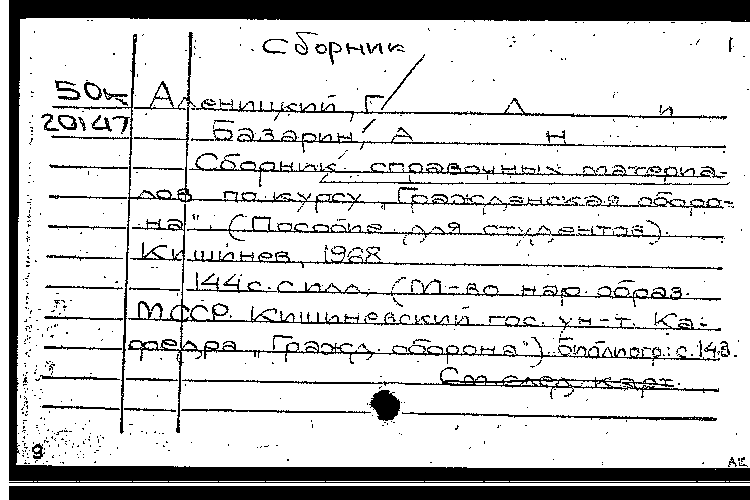 Сборник
1
50к Аленицкий, Г Л и
20147 Базарин, А Н
Сборник справочных материа-
лов по курсу „Гражданская оборо-
на". (Пособие для студентов).
Кишинев, 1968
144 с. с илл; (М-во нар. образ.
МССР. Кишиневский гос. ун-т. Ка-
федра „Гражд. оборона"). Библиогр: с. 143.
См след карт.
9